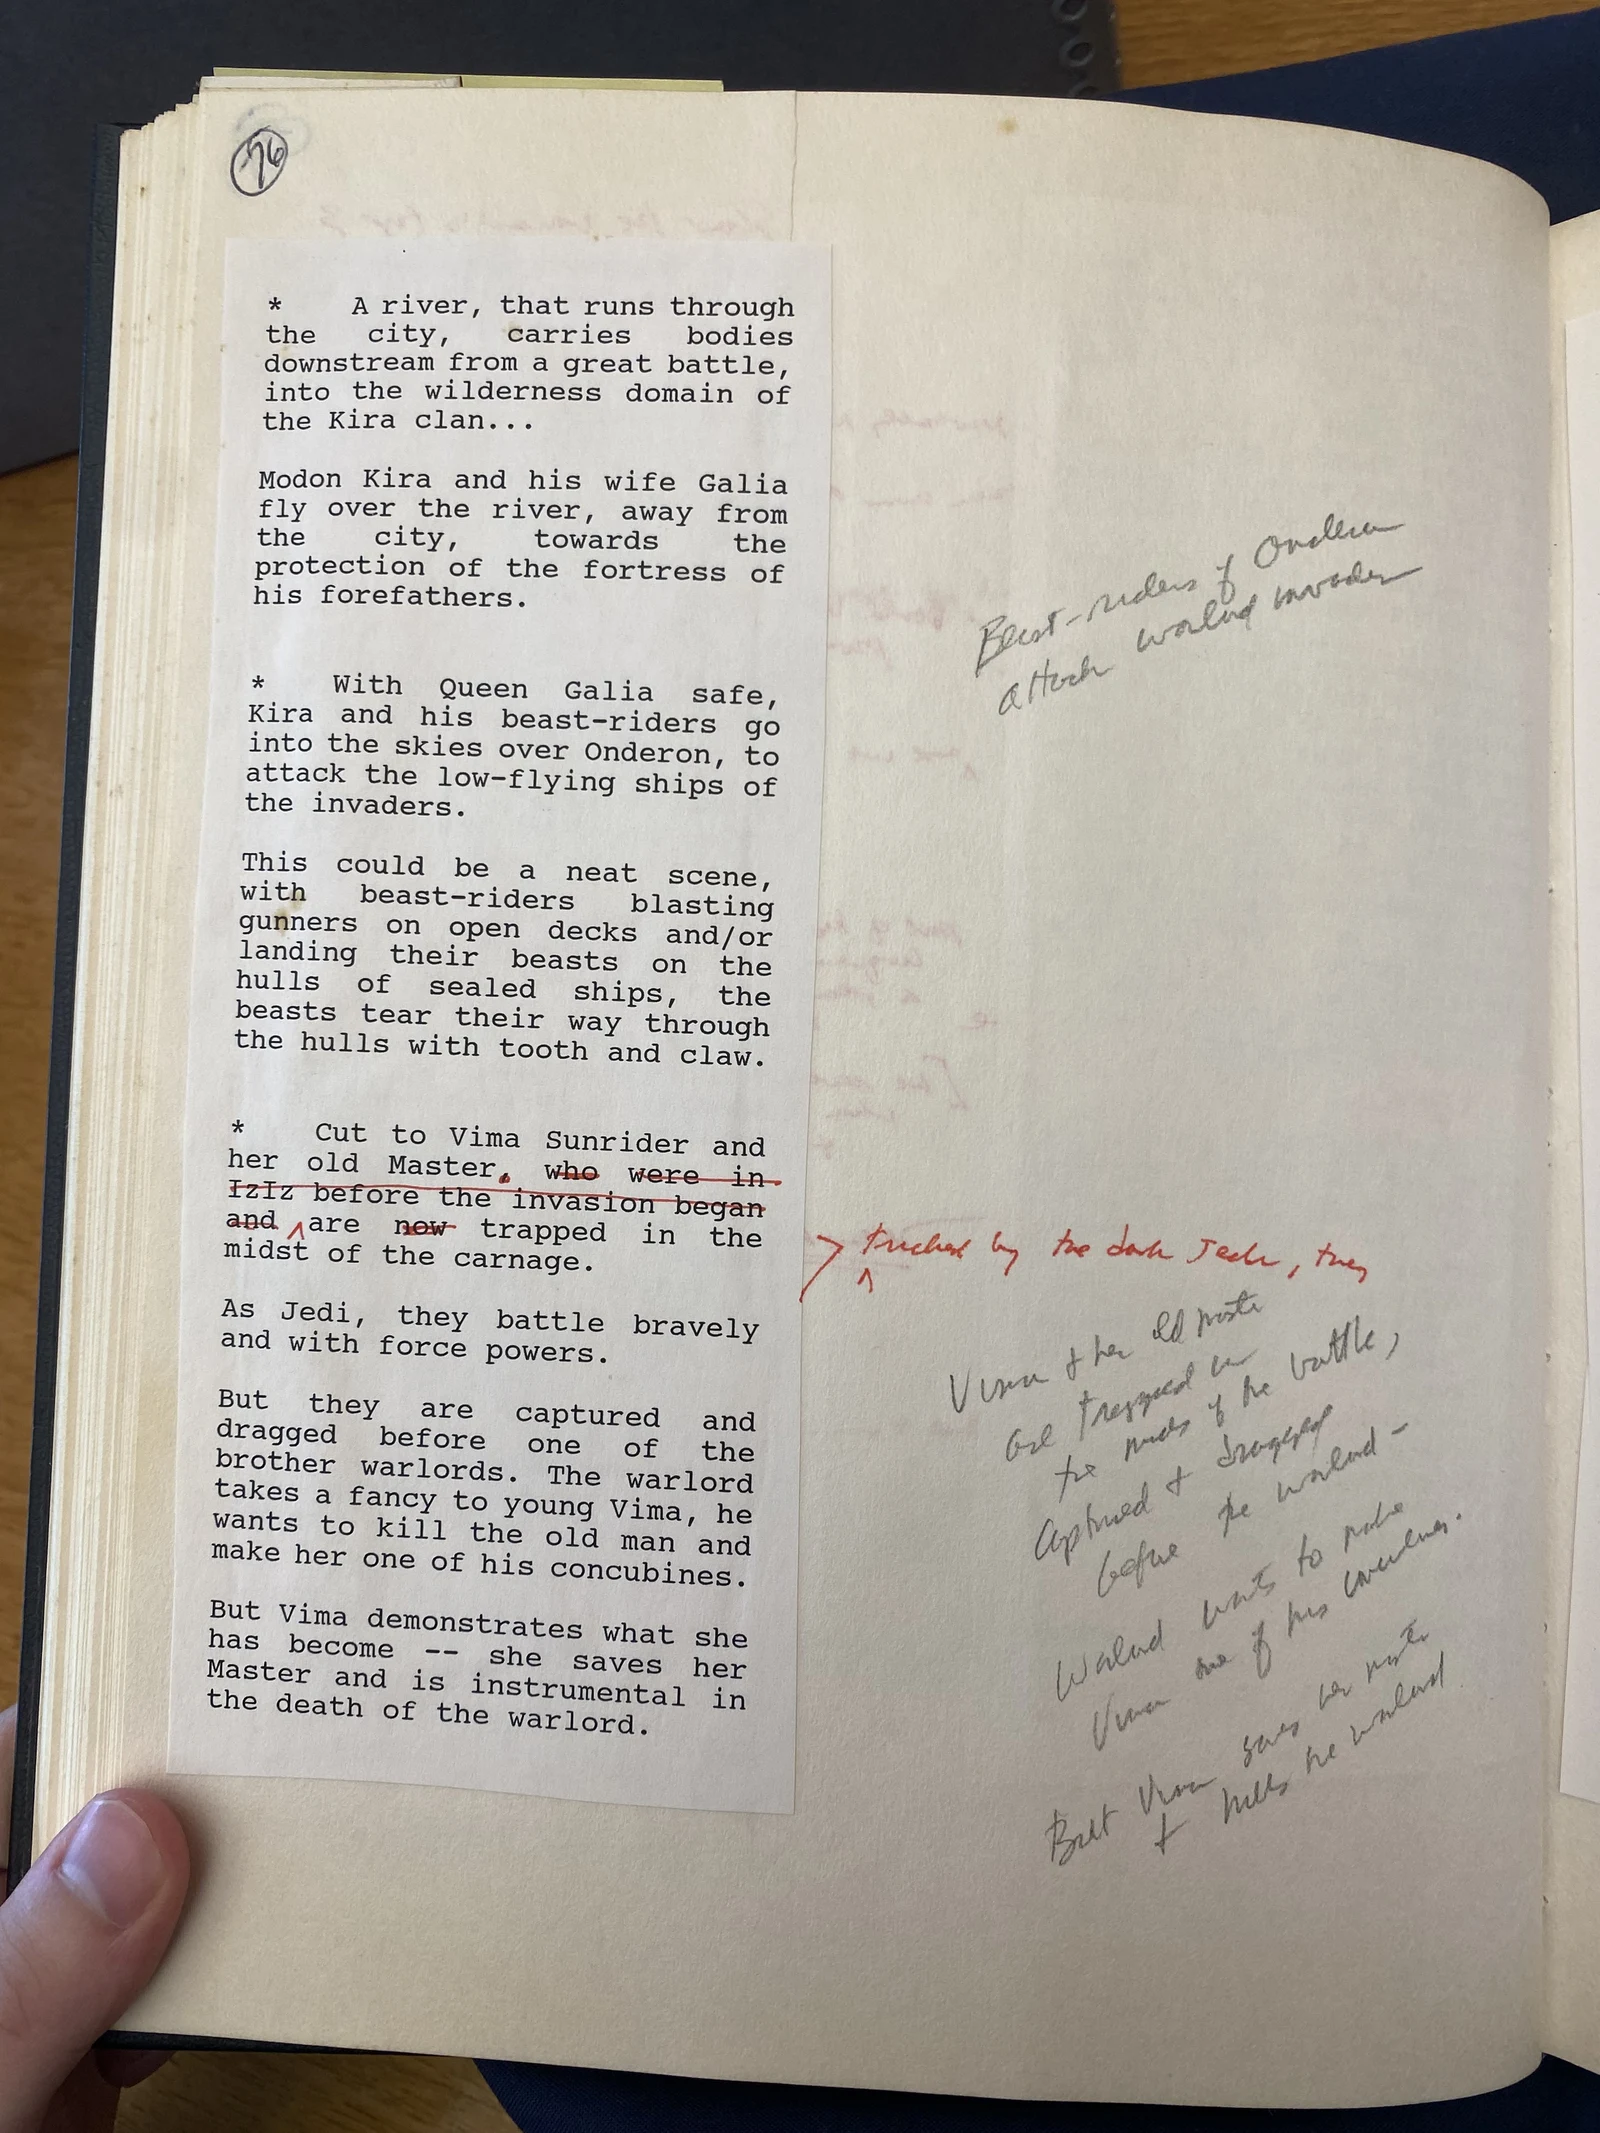 76
* A river, that runs through
the city, carries bodies
downstream from a great battle,
into the wilderness domain of
the Kira clan...
Modon Kira and his wife Galia
fly over the river, away from
the city, towards the
protection of the fortress of
his forefathers.
Beast-riders of Onderon
attack warlord invader
* With Queen Galia safe,
Kira and his beast-riders go
into the skies over Onderon, to
attack the low-flying ships of
the invaders.
This could be a neat scene,
with beast-riders blasting
gunners on open decks and/or
landing their beasts on the
hulls of sealed ships, the
beasts tear their way through
the hulls with tooth and claw.
* Cut to Vima Sunrider and
her old Master, who were in
IzIz before the invasion began
and are now trapped in the
midst of the carnage.
tricked by the dark Jedi, they
As Jedi, they battle bravely
and with force powers.
But they are captured and
dragged before one of the
brother warlords. The warlord
takes a fancy to young Vima, he
wants to kill the old man and
make her one of his concubines.
But Vima demonstrates what she
has become -- she saves her
Master and is instrumental in
the death of the warlord.
Vima + her old master
are trapped in
the midst of the battle,
captured + dragged
before the warlord -
Warlord wants to make
Vima one of his concubines.
But Vima saves her master
+ kills the warlord